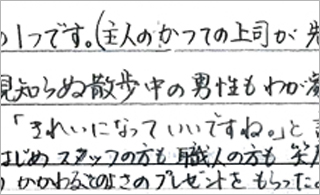 の1つです。(主人のかつての上司が
見知らぬ散歩中の男性もわが家
「きれいになっていいですね。」と
はじめスタッフの方も職人の方も笑
かかわることのよさのプレゼントをもらった。